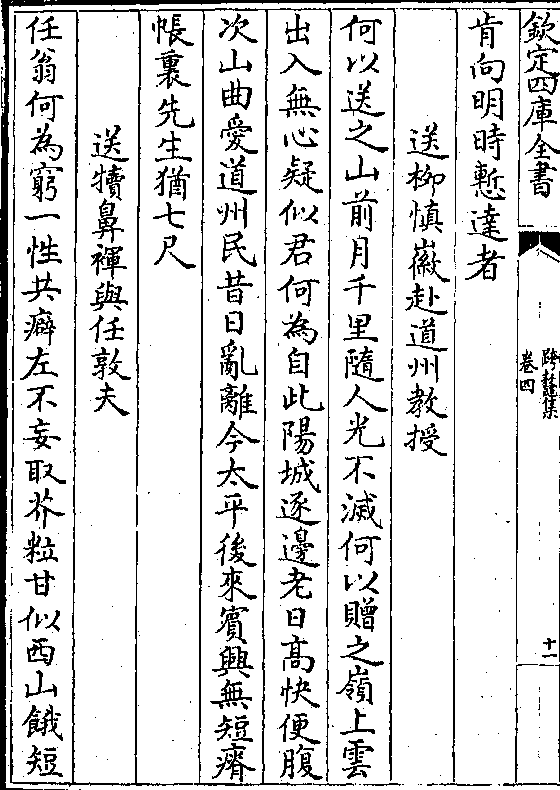 欽定四庫全書
跨鼇集
卷四
十一
肯向明時慙達者
送柳慎徽赴道州教授
何以送之山前月千里隨人光不滅何以贈之嶺上雲
出入無心疑似君何為自此陽城逐邊老日高快便腹
次山曲愛道州民昔日亂離今太平後來賓興無短瘠
帳裏先生猶七尺
送犢鼻褌與任敦夫
任翁何為窮一性共癖左不妄取芥粒甘似西山餓短